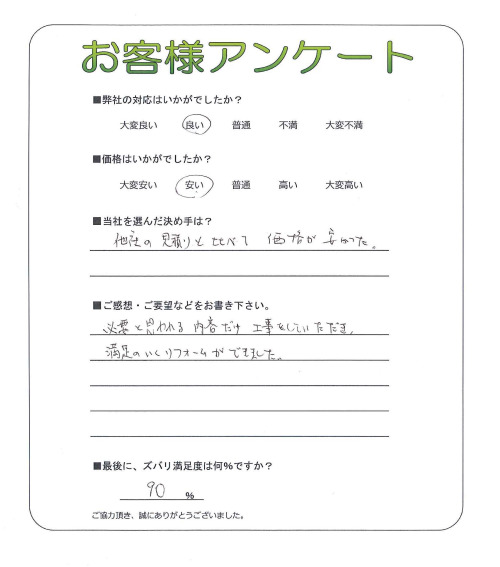 お客様アンケート
■弊社の対応はいかがでしたか？
大変良い 良い 普通 不満 大変不満
■価格はいかがでしたか？
大変安い 安い 普通 高い 大変高い
■当社を選んだ決め手は？
他社の見積りと比べて 価格が安かった。
■ご感想・ご要望などをお書き下さい。
必要と思われる内容だけ工事をしていただき、
満足のいくリフォームができました。
■最後に、ズバリ満足度は何%ですか？
90 %
ご協力頂き、誠にありがとうございました。